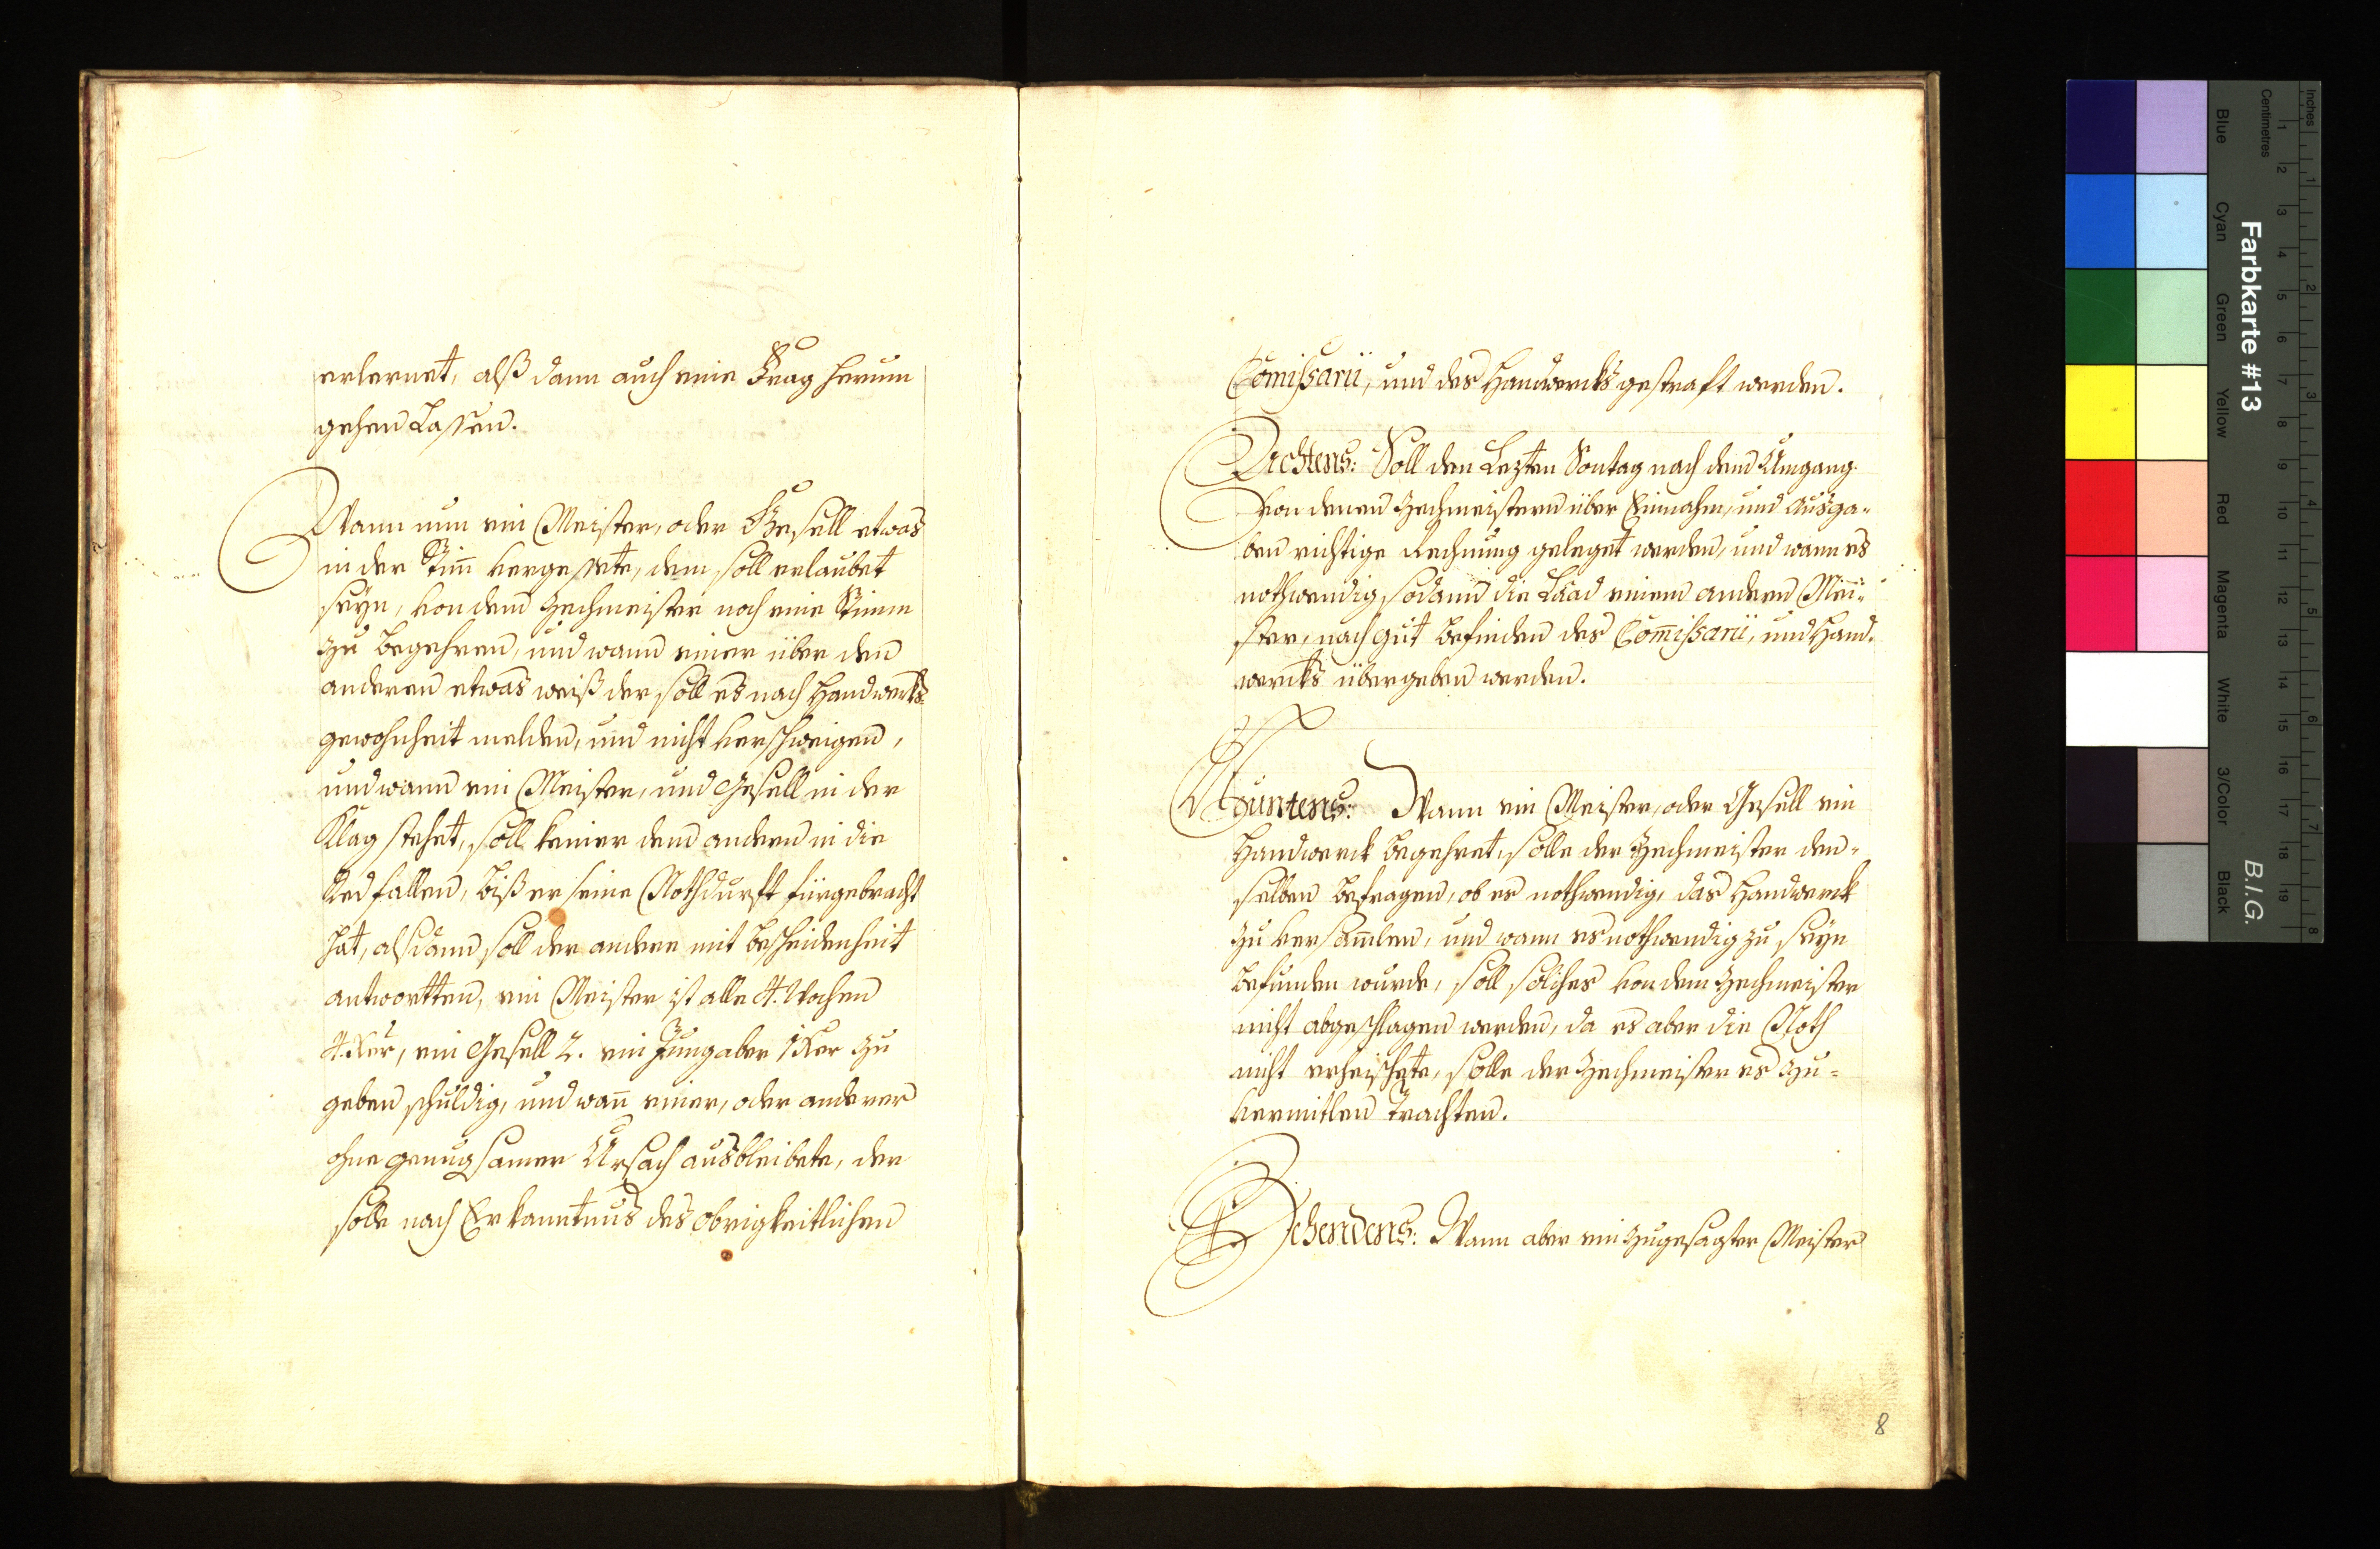 erlernet, alß dann auch eine Frag herum
gehen Lassen.
Wann nun ein Meister, oder Gesell etwas
in der Stim̄ vergessete, dem soll erlaubet
seyn, von dem Zechmeister noch eine Stimm
zu begehren, und wann einer über den
anderen etwas weiß der soll es nach Handwerks
gewohnheit melden, und nicht verschweigen,
und wann ein Meister, und Gesell in der
Klag stehet, soll keiner dem andern in die
Red fallen, biß er seine Nothdurft fürgebracht
hat, alsdann soll der andere mit bescheidenheit
antwortten, ein Meister ist alle 4. Wochen
4. Xer, ein Gesell 2. ein Jung aber 1 Xer zu
geben schuldig, und wan̄ einer, oder anderer
ohne genugsamer Ursach ausbleibete, der
solle nach Erkanntnus des obrigkeitlichen
Com̄issarii, und des Handwercks gestraft werden.
Achtens: Soll den Lezten Sontag nach dem Umgang
von denen Zechmeistern über Einnahm, und Ausga-
ben richtige Rechnung geleget werden, und wann es
nothwendig, sodann die Laad einem andern Mei-
ster, nach gut befinden des Com̄issarii, und Hand-
wercks übergeben werden.
Neuntens: Wann ein Meister, oder Gesell ein
Handwerck begehret, solle der Zechmeister den-
selben befragen, ob es nothwendig, das Handwerck
zu versam̄len, und wann es nothwendig zu seyn
befunden wurde, soll solches von dem Zechmeister
nicht abgeschlagen werden, da es aber die Noth
nicht erheischete, solle der Zechmeister es zu-
vermitlen trachten.
Zehendens: Wann aber ein zugesagter Meister
8
Inches
Centimetres
Farbkarte #13
B.I.G.
Blue
Cyan
Green
Yellow
Red
Magenta
White
3/Color
Black